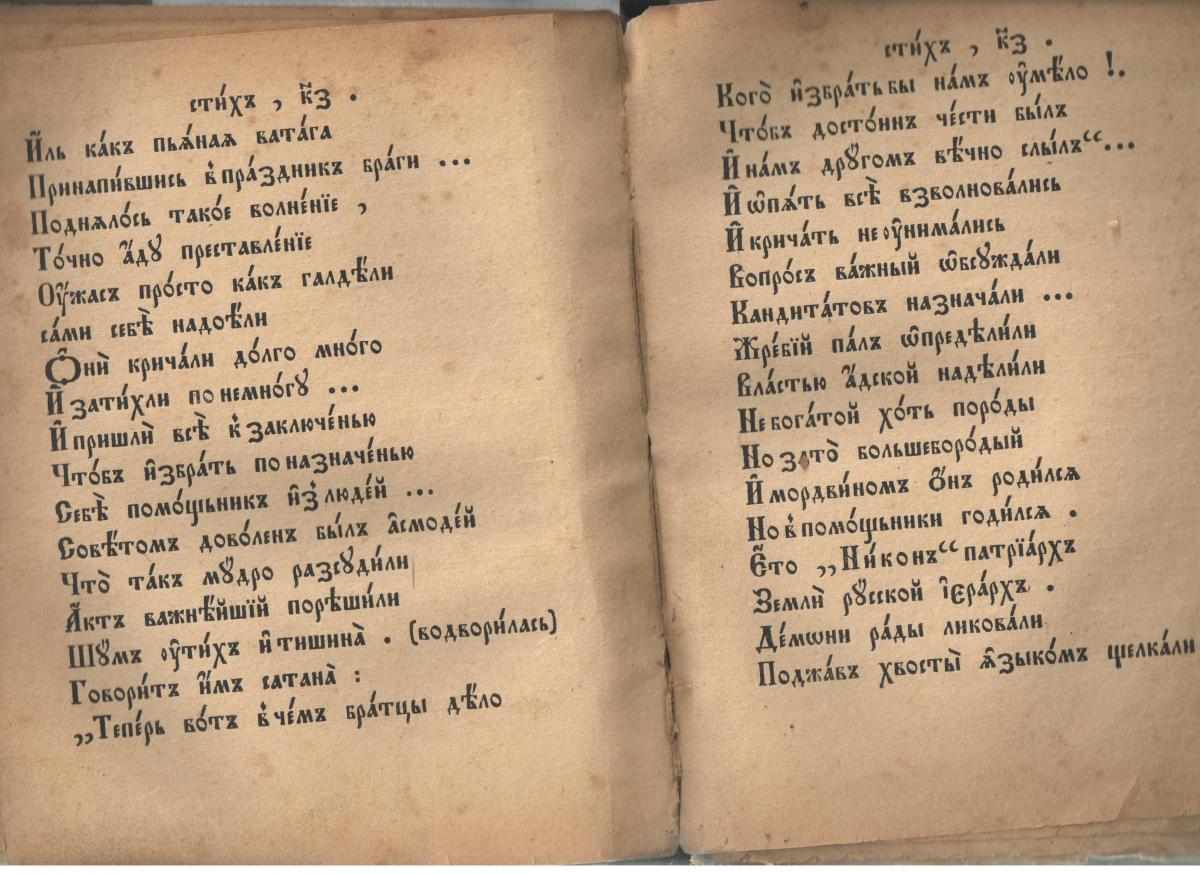 сти́хъ , к҃з .
И҆̀ль ка́къ пьѧ́наѧ вата́га
Принапи́вшись в̾пра́здникъ бра́ги ...
Поднѧло́сь тако́е волне́нїе ,
То́чно а҆́дꙋ преставле́нїе
Оу҆́жасъ про́сто ка́къ галдѣ́ли
са́ми себѣ̀ надоѣ́ли
Ѻ҆нѝ крича́ли до́лго мно́го
И҆ зати́хли по немно́гꙋ ...
И҆ пришлѝ всѣ̀ к̾ заключе́нью
Что́бъ и҆збра́ть по назначе́нью
Себѣ̀ помо́щьникъ и҆з̾ люде́й ...
Совѣ́томъ дово́ленъ бы́лъ а҆смоде́й
Что̀ та́къ мꙋ́дро разсꙋди́ли
А҆́ктъ важнѣ́йшїй порѣши́ли
Шꙋ́мъ ᲂу҆ти́хъ и҆ тишина̀ . (водвори́лась)
Говори́тъ и҆́мъ сатана̀ :
„Тепе́рь во́тъ в̾ че́мъ бра́тцы дѣ́ло
сти́хъ , к҃з .
Кого̀ и҆збра́ть бы на́мъ ᲂу҆мѣ́ло !.
Что́бъ досто́инъ че́сти бы́лъ
И҆ на́мъ дрꙋ́гомъ вѣ́чно слы́лъ“...
И҆ ѡ҆пѧ́ть всѣ̀ взволнова́лись
И҆ крича́ть не ᲂу҆нима́лись
Вопро́съ ва́жный ѡ҆бсꙋжда́ли
Кандита́товъ назнача́ли ...
Жре́бїй па́лъ ѡ҆предѣли́ли
Вла́стью а҆́дской надѣли́ли
Не бога́той хо́ть поро́ды
Но зато̀ большеборо́дый
И҆ мордви́номъ ѻ҆́нъ роди́лсѧ
Но в̾ помо́щьники годи́лсѧ .
Е҆́то „Ни́конъ“ патрїа́рхъ
Землѝ рꙋ́сской і҆єра́рхъ .
Де́мѡни ра́ды ликова́ли
Поджа́въ хвосты̀ ꙗ҆зыко́мъ щелка́ли